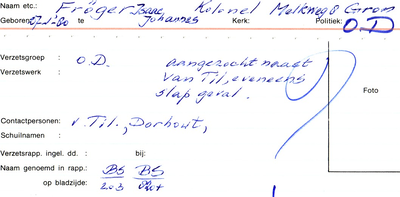 Naam etc.: Fröger, Isaac Johannes Kolonel Melkweg 8 Grom
Geboren: 27-1-'80 Kerk: Politiek: O.D.
Verzetsgroep : O.D. aangezocht naast
Verzetswerk : van Til, eveneens
slap geval.
Foto
Contactpersonen: v. Til., Dorhout,
Schuilnamen :
Verzetsrapp. ingel. dd. : bij:
Naam genoemd in rapp.: BS BS
op bladzijde: 203